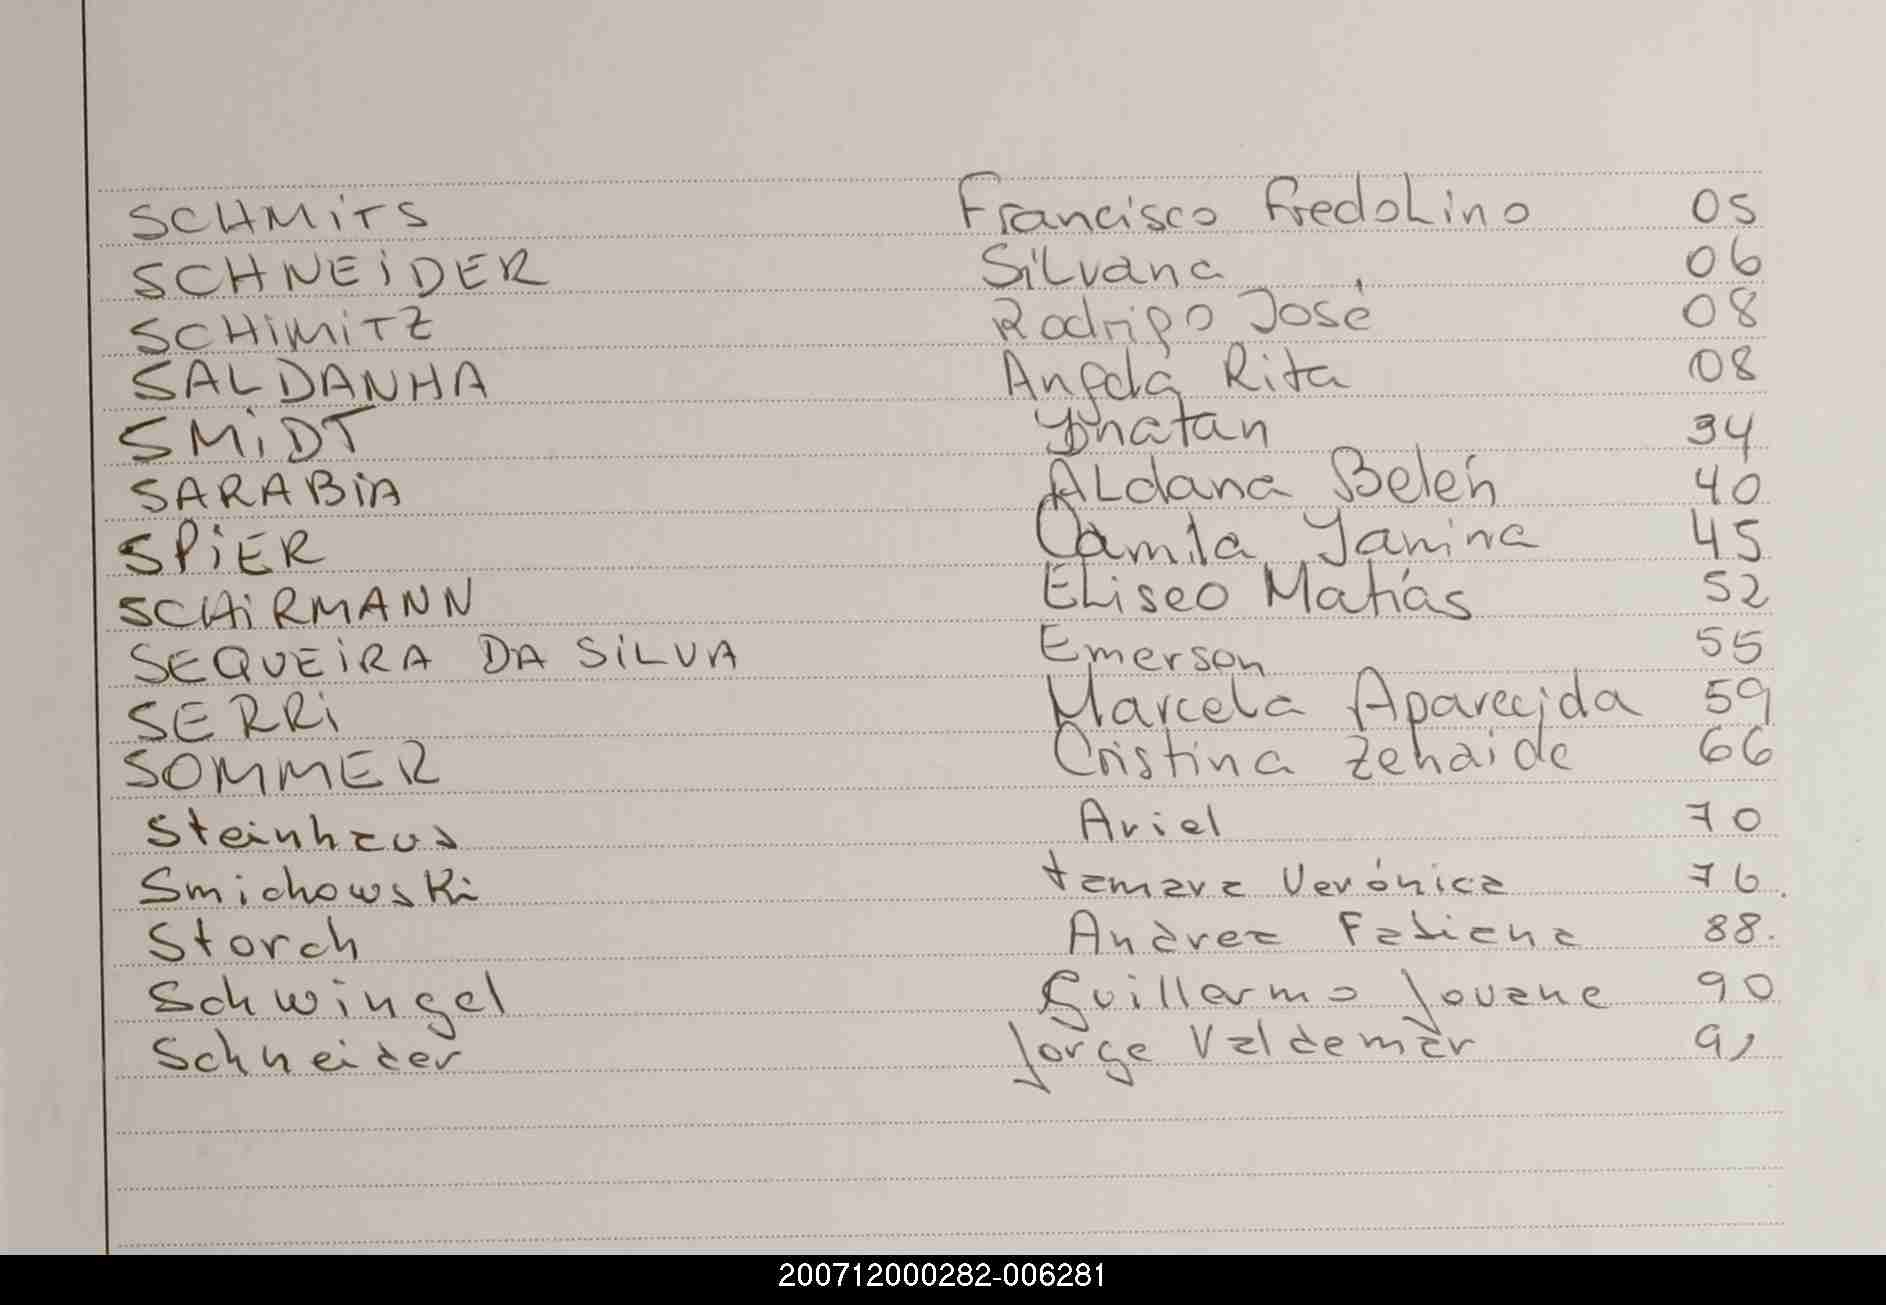 SCHMiTS Francisco Fredolino 05
SCHNEiDER Silvana 06
SCHiMiTZ Rodrigo José 08
SALDANHA Angela Rita 08
SMiDT Jonatan 34
SARABiA Aldana Belén 40
SPiER Camila Yanina 45
SCHiRMANN Eliseo Matías 52
SEQUEiRA DA SiLVA Emerson 55
SERRi Marcela Aparecida 59
SOMMER Cristina Zenaide 66
Steinhaus Ariel 70
Smichowski tamara Verónica 76
Storch Andrea Fabiana 88.
Schwingel Guillermo Jovane 90
Schneider Jorge Valdemar 91
200712000282-006281